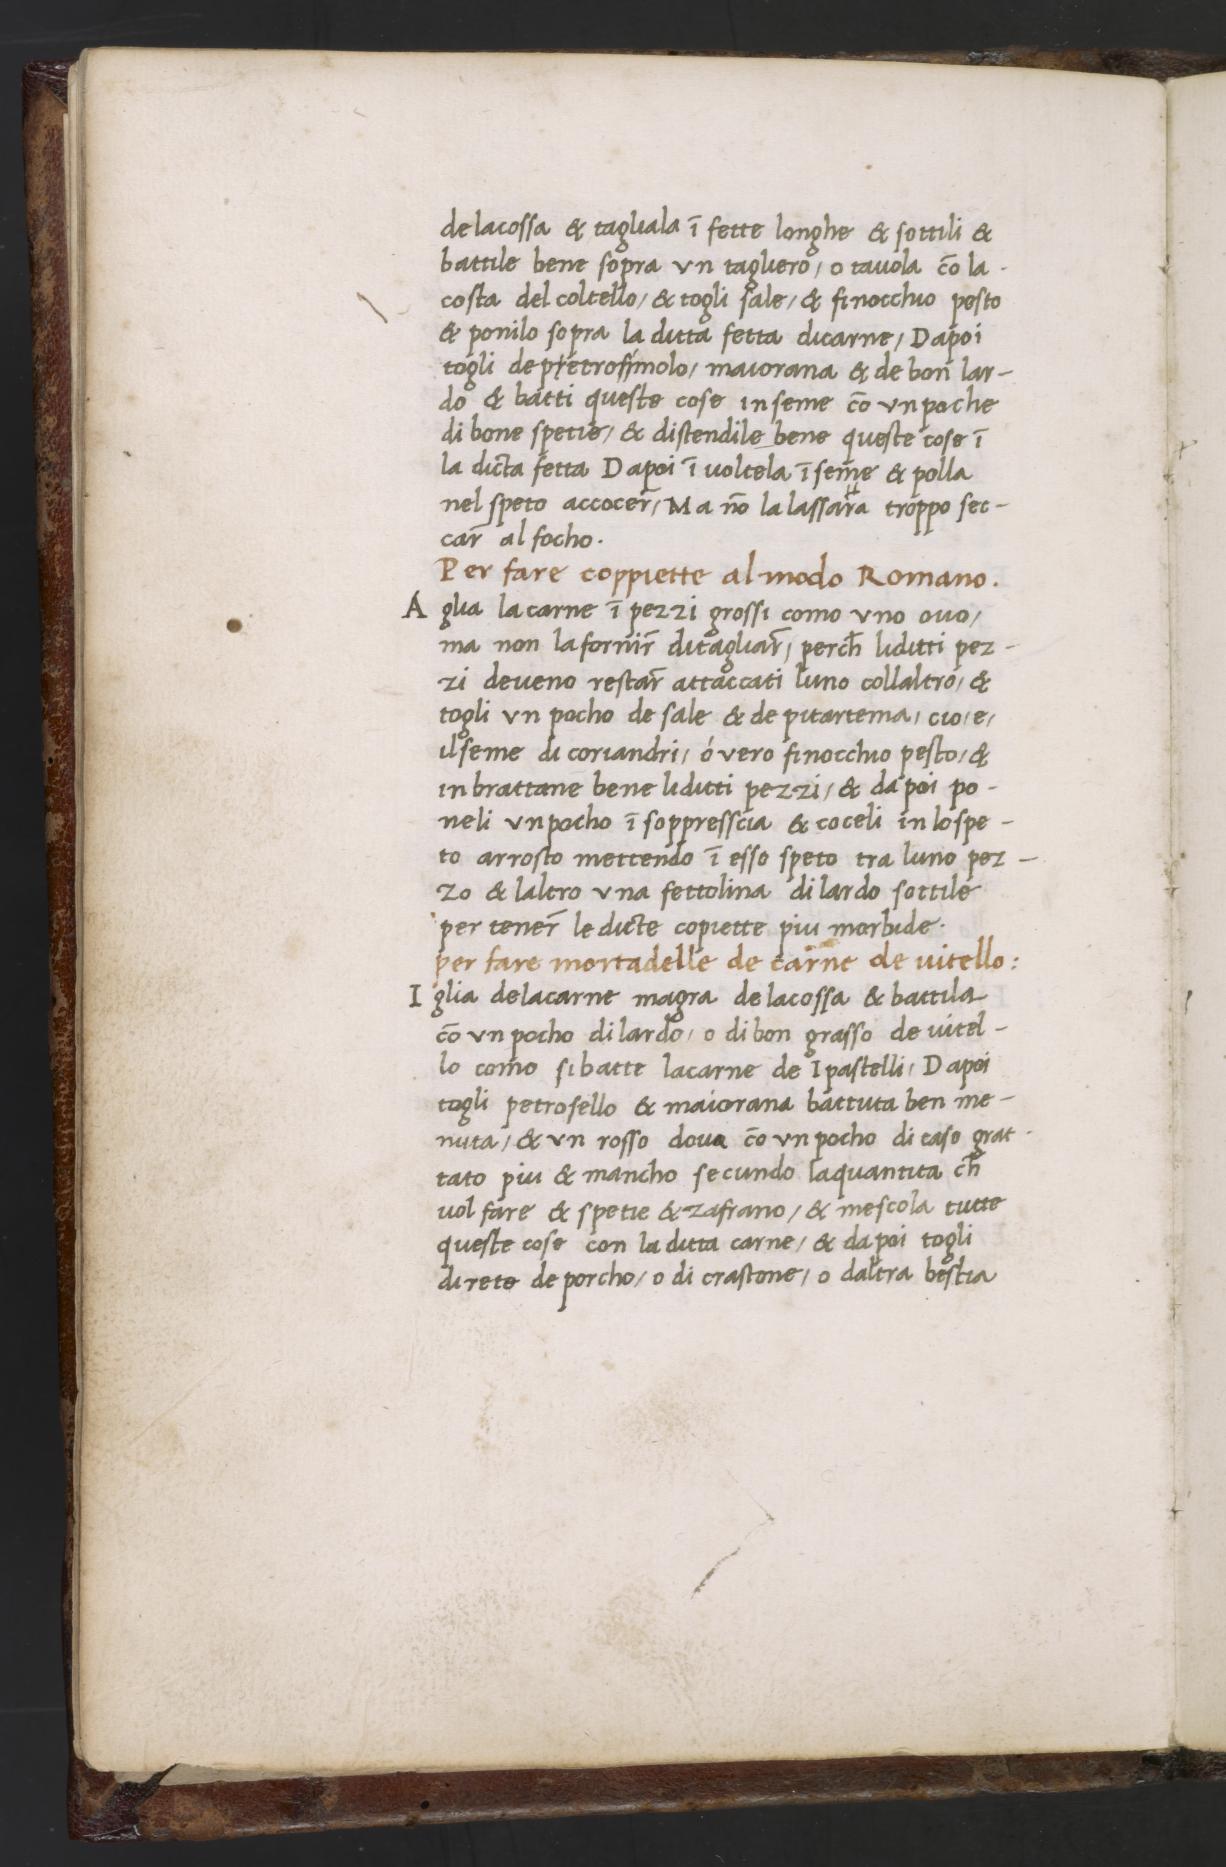 delacossa & tagliala ī fette longhe & sottili &
battile bene sopra vn tagliero / o tauola cō la
costa del coltello / & togli sale / & finocchio pesto
& ponilo sopra la ditta fetta dicarne / Dapoi
togli de petrosimolo / maiorana & de bon lar-
do & batti queste cose inseme cō vn poche
di bone spetie / & distendile bene queste cose ī
la dicta fetta Dapoi ī uoltela ī seme & polla
nel speto accocer̄ / Ma nō la lassara troppo sec-
car̄ al focho.
Per fare coppiette al modo Romano.
A glia la carne ī pezzi grossi como vno ouo /
ma non la fornir̄ ditagliar̄ / perch̄ liditti pez-
zi deueno restar̄ attaccati luno collaltro / &
togli vn pocho de sale & de pitartema / cio / e /
ilseme di coriandri / ó vero finocchio pesto / &
inbrattane bene liditti pezzi / & dapoi po-
neli vnpocho ī soppresscia & coceli in lospe-
to arrosto mettendo ī esso speto tra luno pez-
zo & laltro vna fettolina di lardo sottile
per tener̄ le dicte copiette piu morbide.
per fare mortadelle de carne de uitello:
I glia delacarne magra delacossa & battila
cō vn pocho di lardo / o di bon grasso de uitel-
lo como si batte lacarne de I pastelli / Dapoi
togli petrosello & maiorana battuta ben me-
nuta / & vn rosso doua cō vn pocho di caso grat-
tato piu & mancho secundo laquantita ch̄
uol fare & spetie & zafrano / & mescola tutte
queste cose con la ditta carne / & dapoi togli
direte de porcho / o di crastone / o daltra bestia